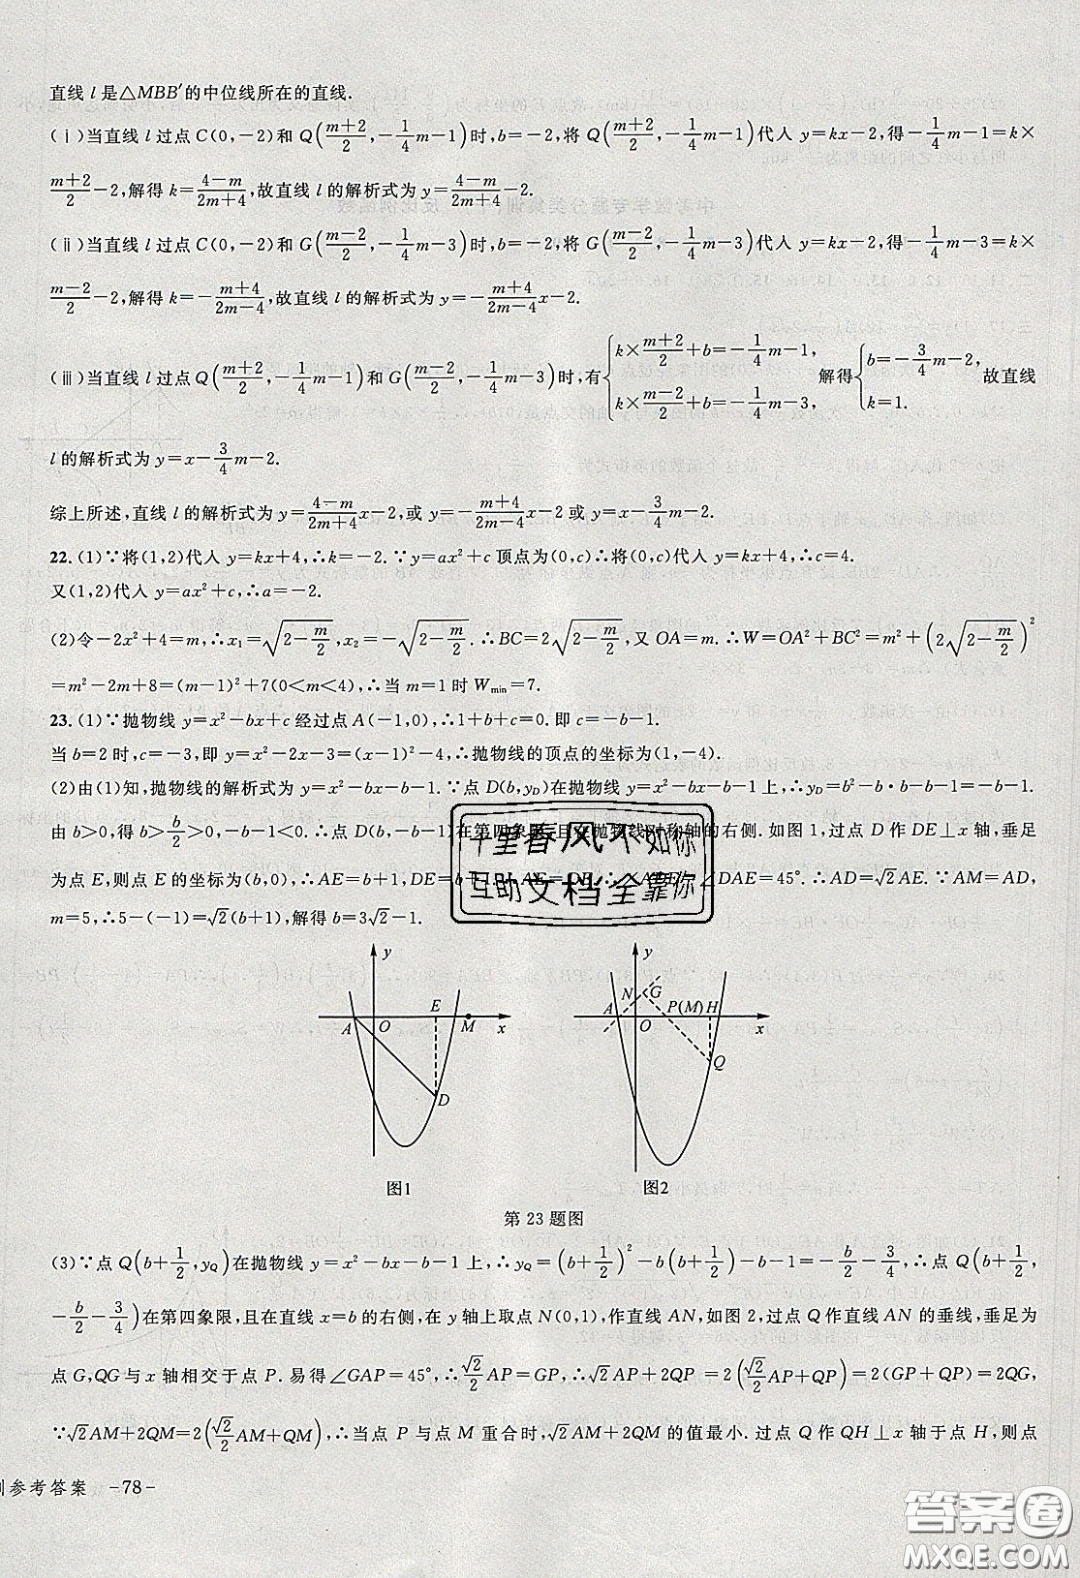 直线 l 是△MBB′的中位线所在的直线.
(ⅰ)当直线 l 过点 C(0,-2)和 Q((m+2)/2,-1/4m-1)时,b=-2,将 Q((m+2)/2,-1/4m-1)代入 y=kx-2,得-1/4m-1=k×
(m+2)/2-2,解得 k=(4-m)/(2m+4),故直线 l 的解析式为 y=(4-m)/(2m+4)-2.
(ⅱ)当直线 l 过点 C(0,-2)和 G((m-2)/2,-1/4m-3)时,b=-2,将 G((m-2)/2,-1/4m-3)代入 y=kx-2,得-1/4m-3=k×
(m-2)/2-2,解得 k=-(m+4)/(2m-4),故直线 l 的解析式为 y=-(m+4)/(2m-4)x-2.
(ⅲ)当直线 l 过点 Q((m+2)/2,-1/4m-1)和 G((m-2)/2,-1/4m-3)时,有{k×(m+2)/2+b=-1/4m-1, k×(m-2)/2+b=-1/4m-3, 解得{b=-3/4m-2, k=1. 故直线
l 的解析式为 y=x-3/4m-2.
综上所述,直线 l 的解析式为 y=(4-m)/(2m+4)x-2,或 y=-(m+4)/(2m-4)x-2 或 y=x-3/4m-2.
22. (1)∵将(1,2)代入 y=kx+4,∴k=-2.∵y=ax²+c 顶点为(0,c)∴将(0,c)代入 y=kx+4,∴c=4.
又(1,2)代入 y=ax²+c,∴a=-2.
(2)令-2x²+4=m,∴x₁=√(2-m/2),x₂=-√(2-m/2).∴BC=2√(2-m/2),又 OA=m.∴W=OA²+BC²=m²+(2√(2-m/2))²
=m²-2m+8=(m-1)²+7(0<m<4),∴当 m=1 时 Wmin=7.
23. (1)∵抛物线 y=x²-bx+c 经过点 A(-1,0),∴1+b+c=0.即 c=-b-1.
当 b=2 时,c=-3,即 y=x²-2x-3=(x-1)²-4,∴抛物线的顶点的坐标为(1,-4).
(2)由(1)知,抛物线的解析式为 y=x²-bx-b-1.∵点 D(b,yD)在抛物线 y=x²-bx-b-1 上,∴yD=b²-b·b-b-1=-b-1.
由 b>0,得 b>b/2>0,-b-1<0.∴点 D(b,-b-1)在第四象限,且在抛物线对称轴的右侧.如图 1,过点 D 作 DE⊥x 轴,垂足
为点 E,则点 E 的坐标为(b,0),∴AE=b+1,DE=b+1.∴AE=DE.∴∠DAE=45°.∴AD=√2AE.∵AM=AD,
m=5,∴5-(-1)=√2(b+1),解得 b=3√2-1.
千里春风不如你
互助文档全靠你
y
A O E M x
D
图1
y
A N G O P(M) H x
Q
图2
第 23 题图
(3)∵点 Q(b+1/2,yQ)在抛物线 y=x²-bx-b-1 上,∴yQ=(b+1/2)²-b(b+1/2)-b-1=-b/2-3/4,∴点 Q(b+1/2,
-b/2-3/4)在第四象限,且在直线 x=b 的右侧,在 y 轴上取点 N(0,1),作直线 AN,如图 2,过点 Q 作直线 AN 的垂线,垂足为
点 G,QG 与 x 轴相交于点 P.易得∠GAP=45°,∴√2/2AP=GP,∴√2AP+2QP=2(√2/2AP+QP)=2(GP+QP)=2GQ,
∵√2AM+2QM=2(√2/2AM+QM),∴当点 P 与点 M 重合时,√2AM+2QM 的值最小.过点 Q 作 QH⊥x 轴于点 H,则点
训参考答案 -78-
答案圈
MXQE.COM